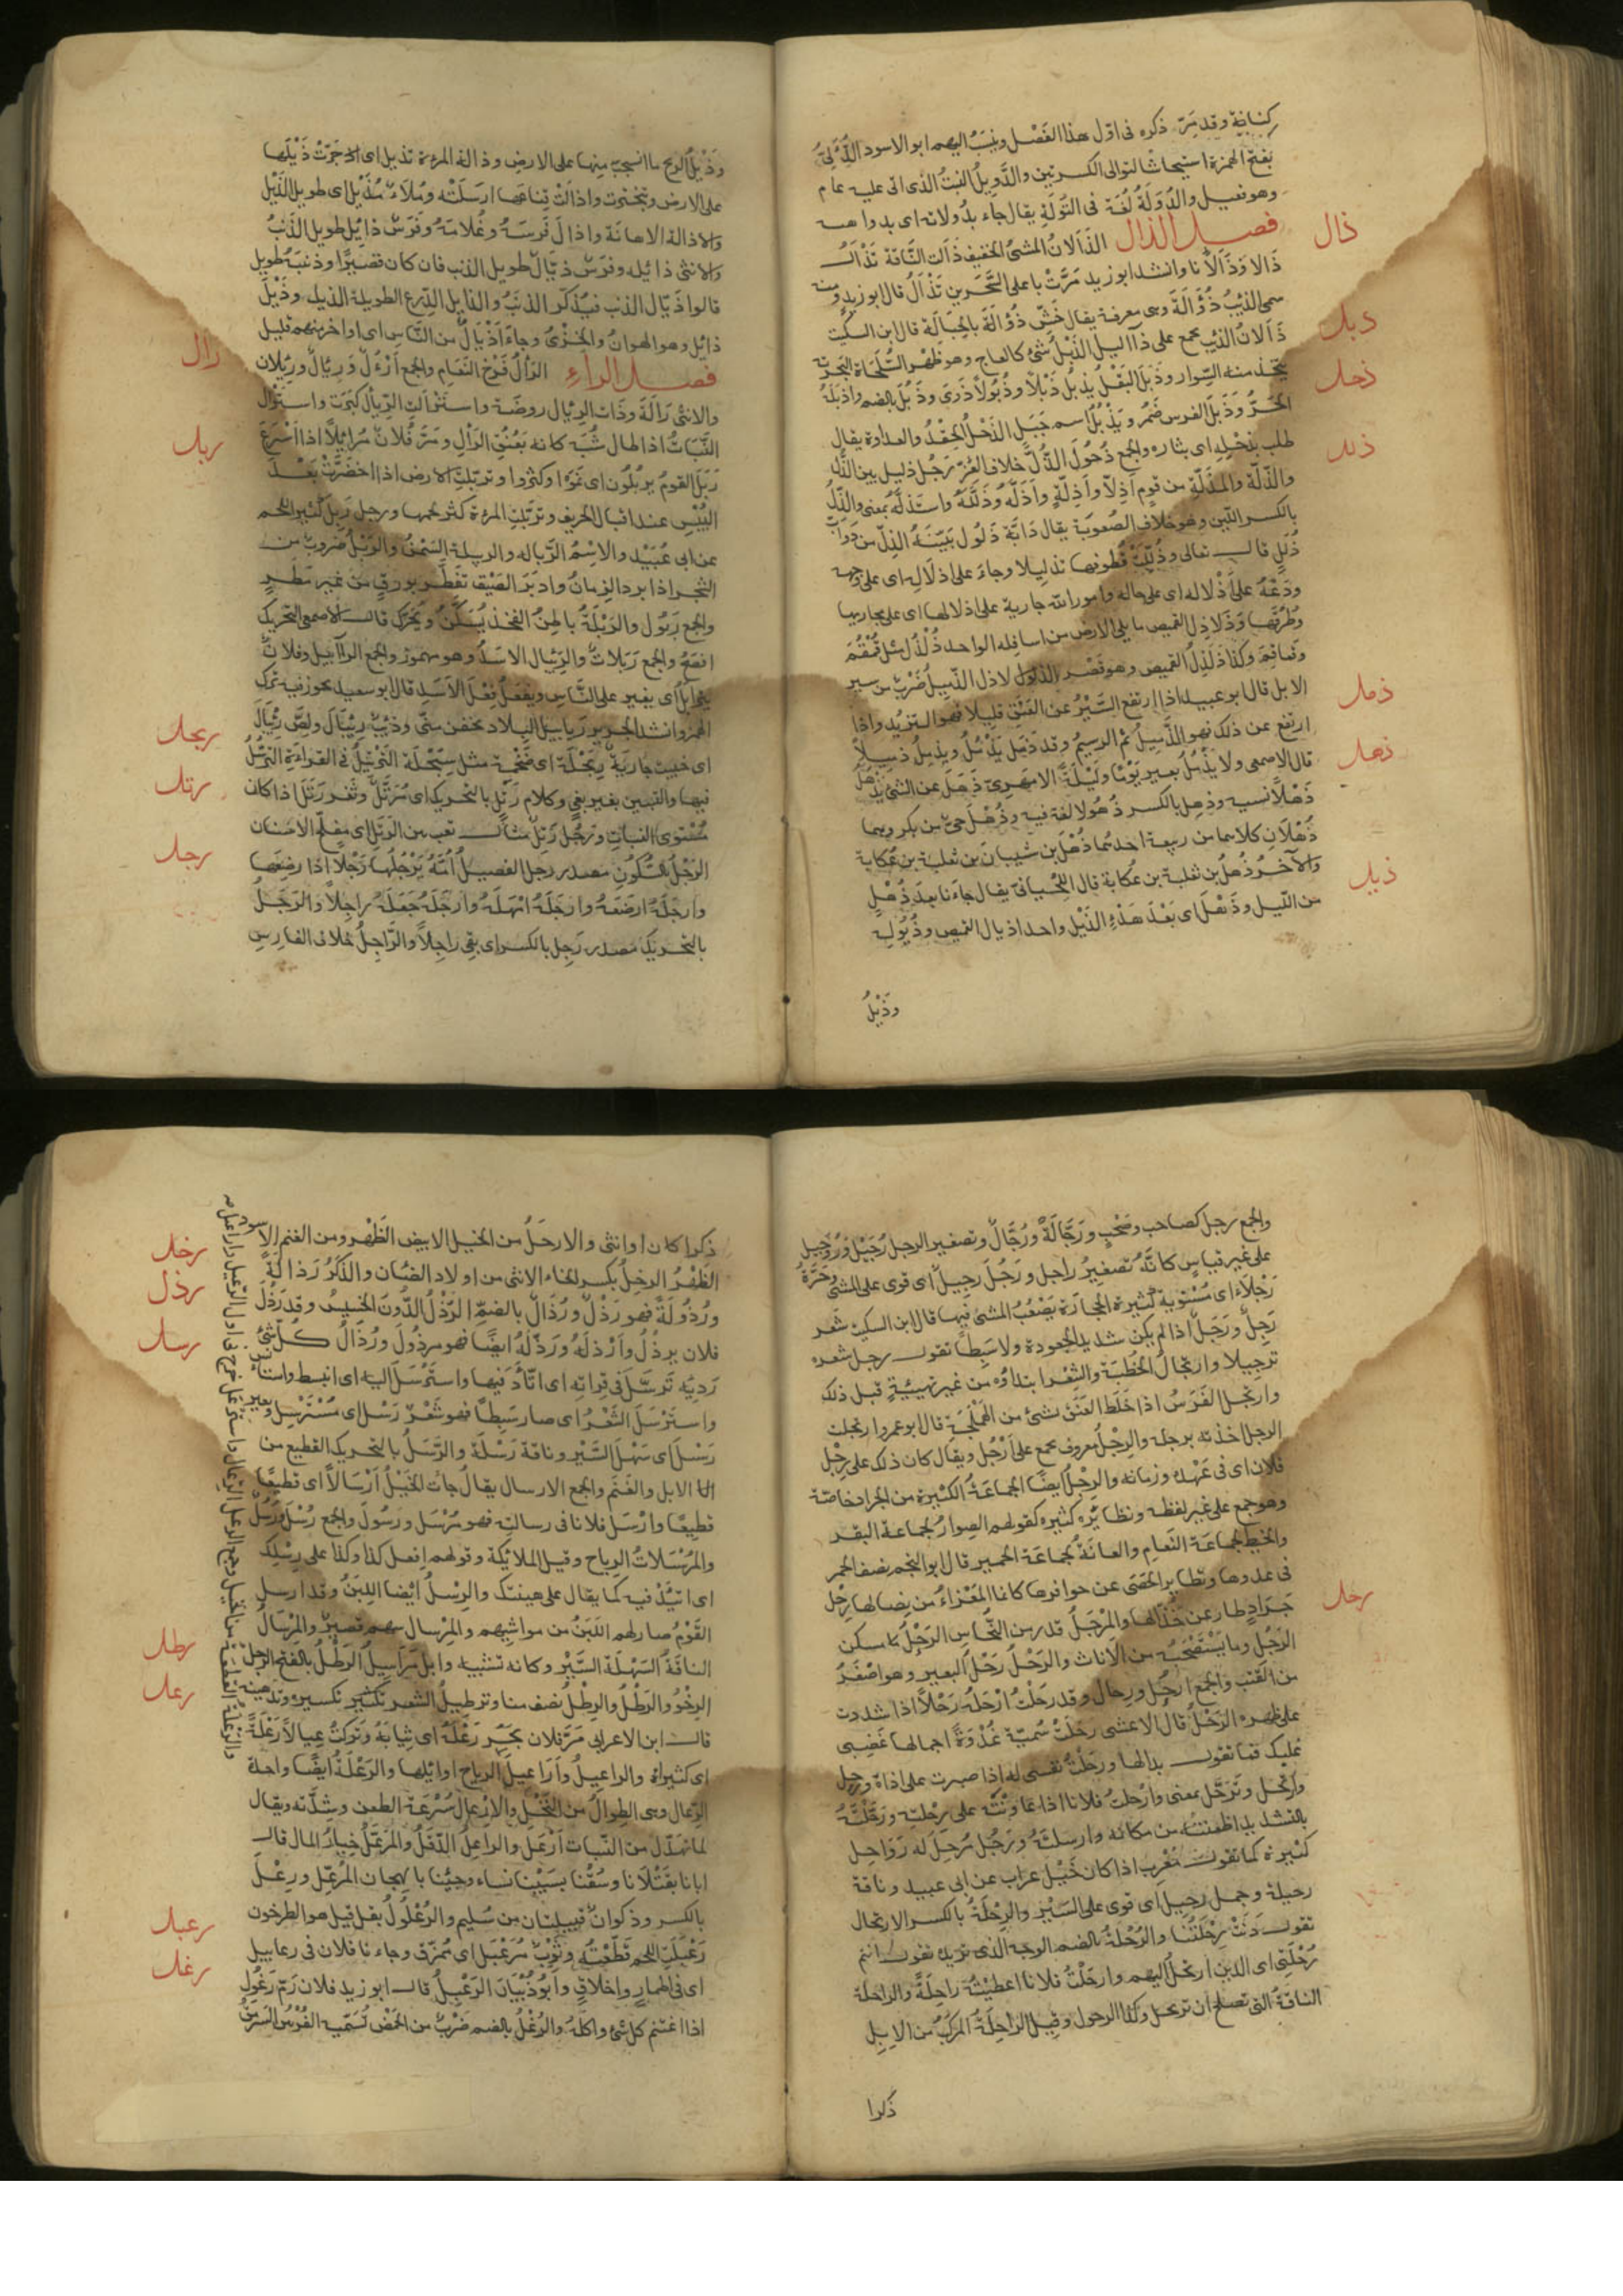 كنانة وقد مرّ ذكره فى اوّل هذا الفصل وينسب اليهم ابو الاسود الدُّؤَلىّ
بفتح الهمزة استيحاشا لتوالى الكسرتين والدَّوِيلُ النبتُ الذى اتى عليه عام
وهو فعيل والدُّوَلَةُ لُغَة فى التُوَلَةِ يقال جاء بدُولاته اى بدواهيه
فصل الذال الذَأَلانُ المشىُ الخفيف ذَأَلت النَّاقة تَذْأَلُ
ذَالا وَذَأَلَاناً وانشد ابو زيد مَرَّتْ باعلى السَّحَرين تَذْأَلُ قال ابو زيد ومنه
سمى الذئبُ ذُؤَالَةَ وهى معرفة يقال خَشِّ ذُؤَالَةَ بالحِبَالَةِ قال ابن السكيت
ذَأَلانُ الذئب يجمع على ذآليل الذَبْلُ شئ كالعاج وهو ظهر السُّلَحفاة البحريّة
يتّخذ منه السِّوار وذَبَلَ البَقْلُ يَذْبُلُ ذَبْلاً وذُبُولاً ذَوَى وذَبُلَ بالضم واذبَلَهُ
الحَرُّ وَذَبَلَ الفرس ضَمُر ويَذْبُلُ اسم جَبَل الذَحْلُ الحِقْدُ والعداوة يقال
طلب بذحْلِه اى بثاره والجمع ذُحُولَ الذُّلُّ خلاف العِزّ رَجُل ذليل بين الذُّلّ
والذّلّة والمَذَلَّةِ من قومٍ أَذِلَّاء وأَذِلَّةٍ وأَذَلَّه وَذَلَّلَهُ واستَذلَّهُ بمعنى والذِّلُّ
بالكسر اللّين وهو خلافِ الصُّعوبَة يقال دَابَّة ذَلُول بَيِّنَةُ الذِلّ من دوابّ
ذُلُلٍ قال تعالى وذُلِّلَتْ قُطُوفها تذليلا وجاءَ على اذلَالِه اى على وجهه
ودَعْهُ على أَذْلاله اى على حاله وامور الله جارية على اذلالها اى على مجاريها
وطُرُقِها وَذَلَاذِل القميص ما يلى الارض من اسافِله الواحد ذُلْذُل مثل قُمْقُم
وقماقِم وكذا ذَلَذِلُ القميص وهو قصر الذلاذل الذَّمِيلُ ضَرْبٌ من سير
الابل قال ابو عبيد اذا ارتفع السَّيْرُ عن العَنَقِ قليلا فهو التزيّد واذا
ارتفع عن ذلك فهو الذَّمِيلُ ثم الرسيم وقد ذَمَلَ يَذْمُلُ ويَذْمِلُ ذميلاً
قال الاصمعى ولا يَذْمُلُ بعير يَوْمًا وليلَةً الا مَهْرِىّ ذَهَلَ عن الشئ يَذْهَلُ
ذَهْلاً نسيه وذهِل بالكسر ذُهُولا لغة فيه وذُهْل حىّ من بكر وهما
ذُهْلانِ كلاهما من ربيعة احدهما ذُهْل بن شيبانَ بن ثعلبة بن عُكابة
والآخر ذُهلُ بن ثعلبة بن عُكابة قال اللِحْيانىّ يقال جاءنا بعد ذُهْلٍ
من اللّيل وذَهْلٍ اى بَعْدَ هَدْءٍ الذَيْل واحد اذيال القميص وذُيُولِه
وذَيْلُ
ذال
ذبل
ذحل
ذلل
ذمل
ذهل
ذيل
وَذَيْلُ الريح ما انسحب مِنها على الارض وذالت المرءة تذيل اى جَرّتْ ذَيْلَها
على الارض وتبخترت واذالَتْ قِنَاعَها ارسَلَتْه ومُلَاءٌ مُذَيَّل اى طويل الذَيْل
والاذالة الاهانَة واذالَ فَرَسَهُ وغُلامَهُ وفَرَسٌ ذائِل طويل الذَنَبُ
والانثى ذائله وفَرَسٌ ذيّالٌ طويل الذنب فان كان قصيرًا وذنبَهُ طويل
قالوا ذَيّال الذنب فيُذكر الذنَبُ والذايل الدِّرع الطويلة الذيل وذَيْلٌ
ذائِل وهو الهوانُ والخِزْىُ وجاءَ أَذْيالٌ من النَّاسِ اى اواخر منهم قليل
فصل الراء الرَأْلُ فَرْخ النَّعَامِ والجمع أَرْءُلٌ وَرِئَالٌ ورِئلان
والانثى رَأْلَة وذَات الرئال روضَة واستَرْأَلَتِ الرِئالُ كبرَت واستَرْأَلَ
النَّبَاتُ اذا طال شُبِّه كانه بعُنُقِ الرَأْلِ ومَرّ فُلانٌ مُرَائِلًا اذا اسْرَعَ
رَبَلَ القومُ يربُلُون اى نَمَوا وكثروا وتربّلت الارض اذا اخضَرّتْ بَعْدَ
اليُبْسِ عند اقبال الخريف وتربّلتِ المرءة كثر لحمها ورجل رَبِلٌ كثير اللحم
عن ابى عُبَيْد والاسْمُ الرَّباله والربيلة السِّمَنُ والرَبْلُ ضروب من
الشجر اذا برد الزمانُ وادبَرَ الصَيْف تفَطَّر بورقٍ من غير مَطرٍ
والجمع رُبُول والرَبْلَةُ باطِنُ الفخذ يُسَكَّنُ ويُحَرّك قال الاصمعى التحريك
افصح والجمع رَبَلاتٌ والرِئبال الاسَدُ وهو مهموز والجمع الرآبيل وفلانٌ
يترأبل اى يغير على النَّاس ويفعَلُ فِعْلَ الأسَدِ قال ابو سعيد يجوز فيه ترك
الهمز وانشد لجرير رَيابيل البِلاد يخفن منّى وذئبٌ رِئبَال ولِصٌّ رِئبَالٌ
اى خبيث جارِيَةٌ رِبَحْلَة اى ضَخْمَة مثل سِبَحْلَة التَرْتيلُ فى القراءَةِ الترَسُّل
فيها والتبيين بغير بَغىٍ وكلام رَتَل بالتحريك اى مُرَتَّلٌ وثَغر رَتَل اذا كان
مُسْتوى النبات ورَجُل رَتَل مثال تعب بين الرتل اى مفلّج الاسنان
الرَجْلُ بالسُكُون مصدر رجَل الفصيلُ أُمَّهُ يَرْجُلُها رَجْلًا اذا رضعَها
وارجَلهُ ارضَعَهُ وارجَلَهُ امْهَلَهُ وارجَلَهُ جَعَلَهُ راجِلاً والرَجَلُ
بالتحريك مصدر رَجِل بالكسر اى بقى راجِلاً والرّاجِلُ خلاف الفارسِ
رال
ربل
ربحل
رتل
رجل
والجمع رجل كصاحب وصَحْبٍ ورَجّالَةٌ ورُجَّالٌ وتصغير الرجل رُجَيْل ورُوَيجل
على غير قياسٍ كانّه تصغيرُ راجل ورَجُل رَجِيلٌ اى قوى على المشى وحَرَّةٌ
رَجْلاَءُ اى مُسْتَوِيَة كثيرة الحجارَة يَصْعُبُ المشى فيها قال ابن السكيت شَعر
رَجِلٌ ورَجَلٌ اذا لم يكن شديد الجعودة ولا سَبِطًا تقول رجل شعره
ترجيلا وارتجالُ الخُطبَة والشِعْر ابتداؤه من غير تهيئةٍ قبل ذلك
وارتجل الفَرَسُ اذا خَلَط العَنَق بشئ من الهَمْلَجَة قال ابو عمرو ارتجلت
الرجل اخذته برجله والرِجْلُ معروف يجمع على أَرْجُل ويقال كان ذلك على رِجْل
فلان اى فى عَهْدِهِ وزمانه والرِجْلُ ايضًا الجماعَةُ الكثيرة من الجراد خاصّة
وهو جمع على غير لفظه ونظائره كثيره كقولهم الصِوارُ لجماعة البقر
والخيط لجماعَة النَعامِ والعانَةُ لجماعَة الحَمير قال ابو النجم يصف الحمر
فى عدوها وتطاير الحَصَى عن حوافرها كانما المَعْزاءُ من نِضالها رِجْل
جَرَادٍ طار عن خُذّالها والمِرْجَلُ قدر من النُّحَاسِ الرَحْلُ مسكن
الرَجُل وما يَسْتصْحِبُه من الاثاث والرَحْلُ رَحْل البعير وهو اصْغَرُ
من القَتَب والجمع ارْحُل ورِحال وقد رحَلْتُ ارْحَلُه رَحْلاً اذا شددت
على ظهره الرَحْلُ قال الاعشى رحَلَتْ سُميّة غُدْوَةً اجمالها غَضبى
عليك فما تقول بدالها ورحَلْتُ نفسى له اذا صبرت على اذاه ورحل
وارتحل وتَرَحَّل بمعنى وارْحَلتُ فلانا اذا عاوَنْتَه على رِحْلَتِه ورَحَّلْتُهُ
بالتشديد اظعَنتُه من مكانه وارسلتُه ورَجُل مُرحِل له رَوَاحِل
كثيرة كما تقول مُعْرِب اذا كان خَيْل عراب عن ابى عبيد وناقة
رحيلة وجمل رحِيل اى قوى على السَيْر والرِحْلَةُ بالكسر الارتحال
تقول دَنَتْ رِحْلَتُنا والرُحْلَةُ بالضم الوجه الذى تريده تقول انتم
رُحْلَتى اى الذين ارتحلُ اليهم وارحَلْتُ فلانا اعطَيْتُه راحِلَةً والراحلة
الناقةُ التى تصلح ان ترحل وكذا الرحول وقيل الراحِلَةُ المرْكَبُ من الابِلِ
ذكرا
رحل
ذكرا كان او انثى والارحَلُ من الخيل الابيض الظَهْر ومن الغنم الاسود
الظَهْرُ الرخِلُ بكسر الخاء الانثى من اولاد الضان والذَكَرُ رَذالَةً
ورُذُولَةً فهو رَذْلٌ ورُذَالٌ بالضمّ الرَذْلُ الدُونَ الخسِيسُ وقد رَذُلَ
فلان يرذُلُ وارْذلَهُ ورَذَلَهُ ايضًا فهو مرذُولَ ورُذَالُ كلّ شئ
رَدِيّه تَرسَّلَ فى قراته اى اتّأَدَ فيها واستَرْسَلَ اليه اى انبسط واستأنس
واستَرْسَلَ الشَعْرُ اى صار سَبِطًا فهو شَعْرٌ رَسْل اى مُسْتَرْسِل وبعير
رَسْلٌ اى سَهْل السَّيْر وناقة رَسْلَة والرَّسَلُ بالتحريك القطيع من
الابل والغَنَم والجمع الارسال يقال جاءت الخَيْلُ أَرْسَالاً اى قطيعًا
قطيعًا وارْسَل فلانا فى رسالة فهو مُرْسَل ورَسُولَ والجمع رُسْل ورُسُلٌ
والمُرْسَلاتُ الرياح وقيل الملائِكَة وقولهم اِفعل كذا وكذا على رِسْلِك
اى اتّئِدْ فيه كما يقال على هِينتك والرِسْلُ ايْضا اللبَنُ وقد ارسل
القَوْمُ صار لهم اللَبَنُ من مواشِيهم والمِرْسال سهم قصير والمِرْسَالُ
الناقَةُ السَّهْلَة السَّيْرِ وكانه تشبيه وابل مَرَاسِيلُ الرَطْلُ بالفتح الرجل
الرِخْوُ والرَطْلُ والرِطْلُ نصف منا وترطيلُ الشعر تكسيره وتدهينه
قال ابن الاعرابى مَرّ فلان يجر رَعْلَهُ اى ثِيَابَهُ وَتَرَكتُ عِيالاً رَعْلَةً
اى كثيراة والراعيلُ وأَرَاعيلُ الرياح اوائلها والرَعْلَةُ ايضًا واحدة
الرِعال وهى الطِوالُ من النَّخْلِ والارعال سُرْعَة الطعن وشدَّته ويقال
لما تهدّل من النّبات أرْعَل والراعِلُ الدّقَلُ والمُرَعَّلُ خِيارُ المال قال
ابأنا بقَتْلانا وسُقْنا بسَبْيِنا نساء وجئنا بالهجان المُرَعّل ورِعْلٌ
بالكسر وذكوانُ قبيلتان من سُليم والرُعْلُولُ بقل قيل هو الطرخون
رَعْبَلْتُ اللحم قَطَعْتُه وثَوْبٌ مُرَعْبَل اى مُمَزّق وجاءنا فلان فى رعابيل
اى فى اطمارٍ واخلاقٍ وأَبُو ذُبْيَانَ الرَعْبِلُ قال ابو زيد فلان رَمّ رَغُول
اذا اغتنم كل شئ واكلَهُ والرُغْلُ بالضم ضَرْبٌ من الحَمْض تُسَمّيه الفُرْسُ السَرْمَقُ
رخل
رذل
رسل
رطل
رعل
رعبل
رغل